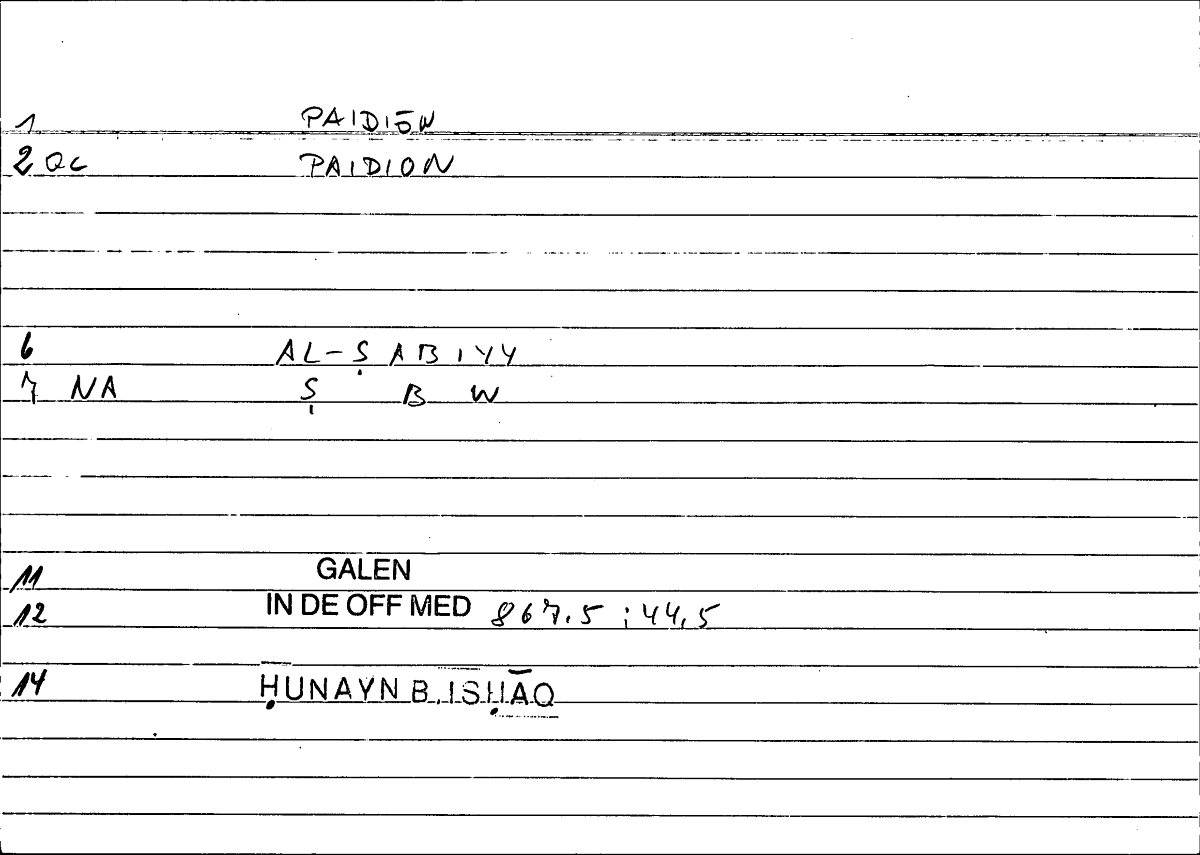 1 PAIDIŌN
2 QC PAIDION
6 AL-ṢABIYY
7 NA Ṣ B W
11 GALEN
12 IN DE OFF MED 867.5 ; 44,5
14 ḤUNAYN B. ISḤĀQ